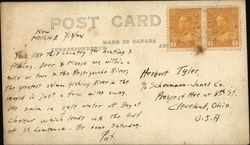 New
POST CARD
MADE IN CANADA
CORRESPONDENCE
You like this country for hunting &
fishing. Deer & Moose are within a
mile or two & the Restigouche River,
the greatest salmon fishing River in the
world is just a few miles away.
We swim in salt water at Bay of
Chaleur which leads into the Gulf
of St. Lawrence. Be home Saturday.
Herbert Tyler,
% Co.
Prospect Ave
Cleveland, Ohio.
U.S.A.